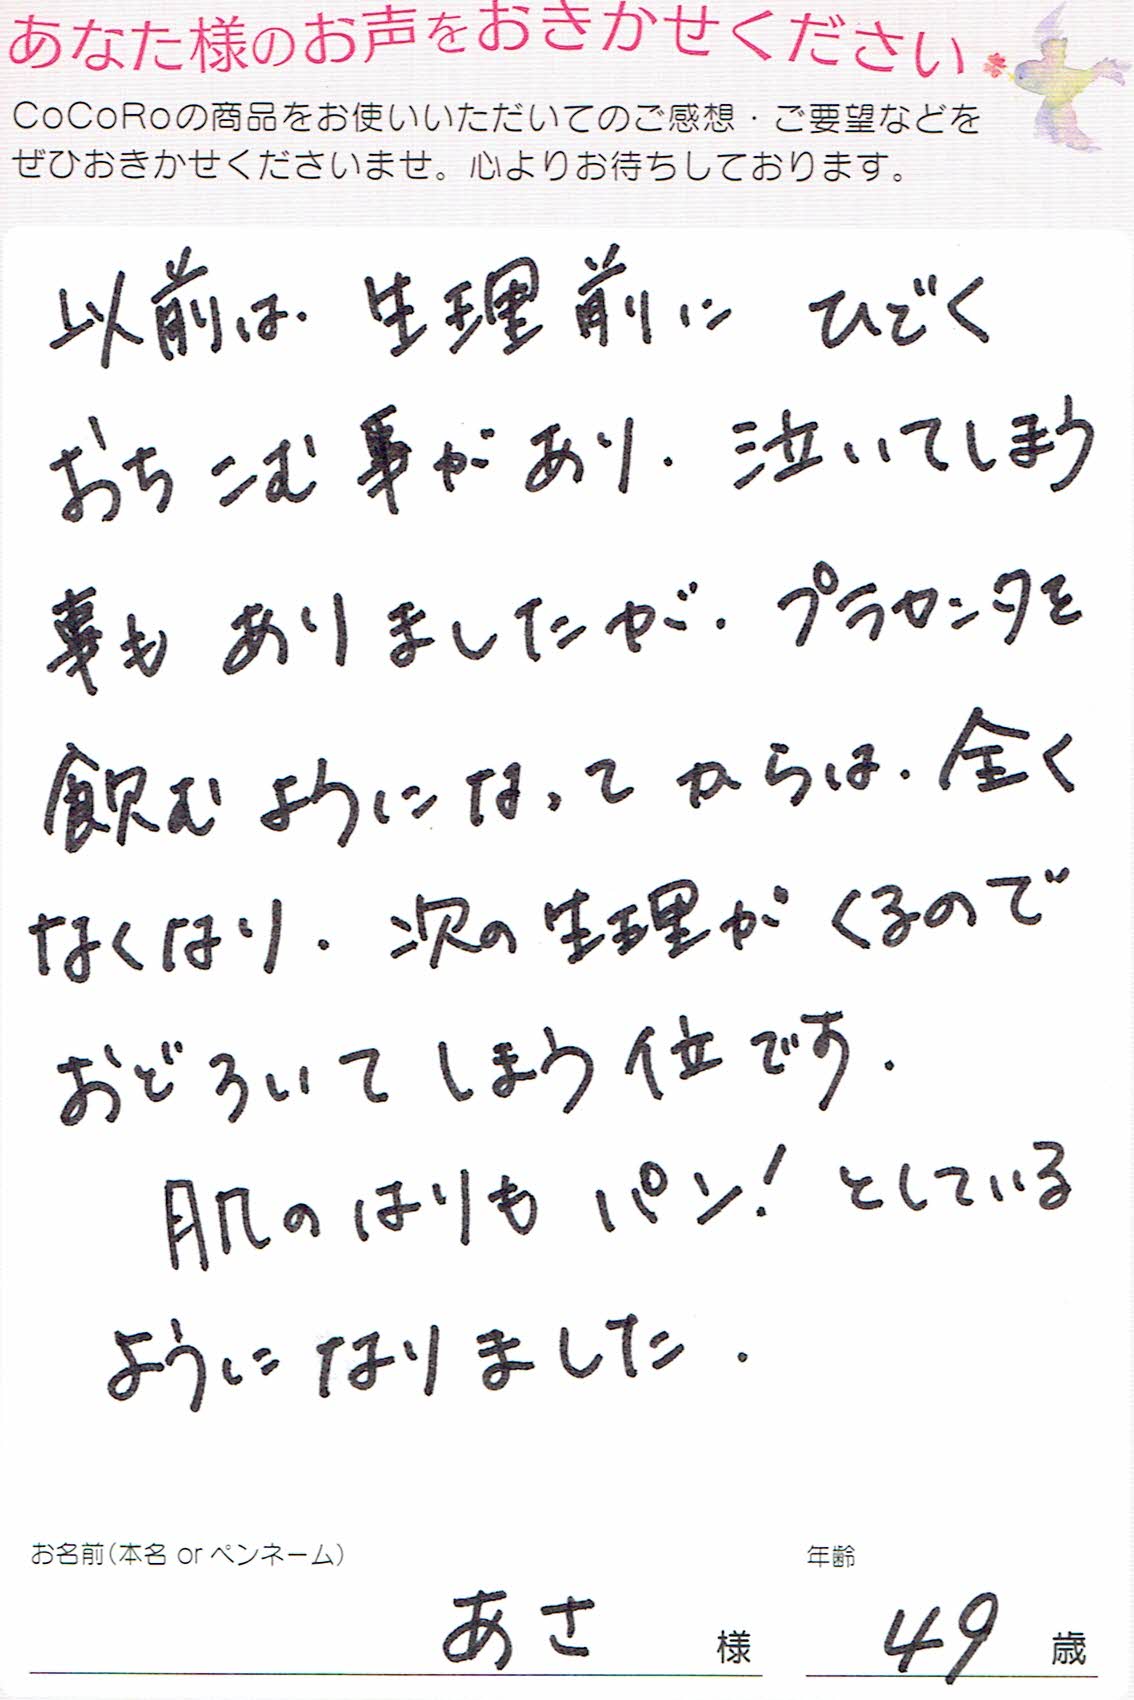 あなた様のお声をおきかせください
CoCoRoの商品をお使いいただいてのご感想・ご要望などを
ぜひおきかせくださいませ。心よりお待ちしております。
以前は、生理前に ひどく
おちこむ事があり、泣いてしまう
事も ありましたが、プラセンタを
飲むようになってからは、全く
なくなり、次の生理がくるので
おどろいてしまう位です。
肌のはりもパン!としている
ようになりました。
お名前(本名 or ペンネーム)
年齢
あさ 様
49 歳